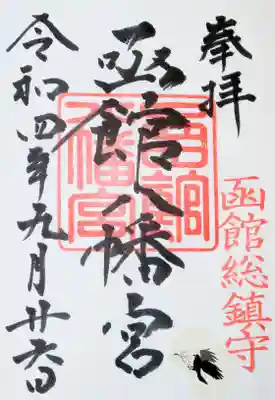 奉拝
函館総鎮守
函館八幡宮
函館
八幡宮
令和四年九月廿六日